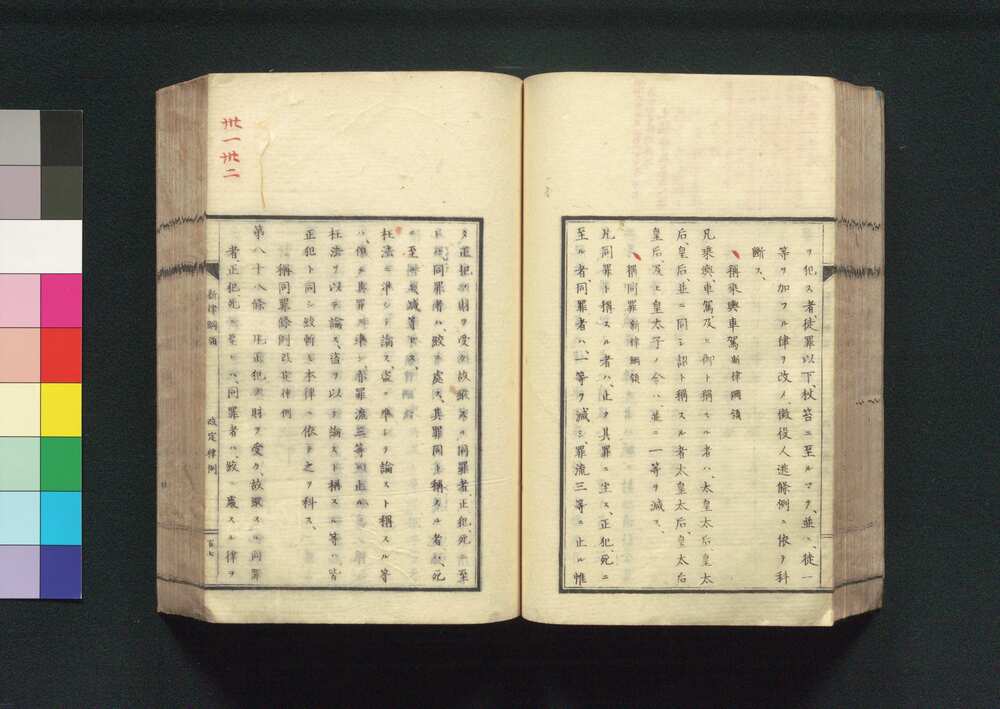 ヲ犯ス者、徒罪以下、杖笞ニ至ルマテ、並ニ、徒一
等ヲ加フル律ヲ改メ、懲役人逃條例ニ依テ科
断ス、
稱乘輿車駕 新律綱領
凡乘輿、車駕及ヒ御ト稱スル者ハ、太皇太后、皇太
后、皇后、並ニ同シ、詔ト稱スル者、太皇太后、皇太后
皇后、及ヒ皇太子ノ令ハ、並ニ一等ヲ減ス、
稱同罪 新律綱領
凡同罪ト稱スル者ハ、止タ其罪ニ坐ス、正犯、死ニ
至ル者、同罪者ハ、一等ヲ減シ、罪流三等ニ止ル、惟
タ正犯ノ財ヲ受ケ、故縱スル同罪者、正犯、死ニ至
同罪者ハ、絞ニ處ス、其罪同ト稱スル者ハ、死
ニ至減等
枉法ニ準シテ論ス、盗ニ準シテ論スト稱スル等
ハ、罪準シ、罪流三等ニ止ル、
枉法ヲ以テ論ス、盗ヲ以テ論スト稱スル等ハ、皆
正犯ト同シ、絞斬モ本律ニ依テ之ヲ科ス、
稱同罪條例 改定律例
第八十八條 凡正犯ノ財ヲ受ケ、故縱スル同罪
者、正犯死ニ至レハ、同罪者ハ、絞ニ處スル律ヲ
新律綱領
改定律例
百七
卅一卅二